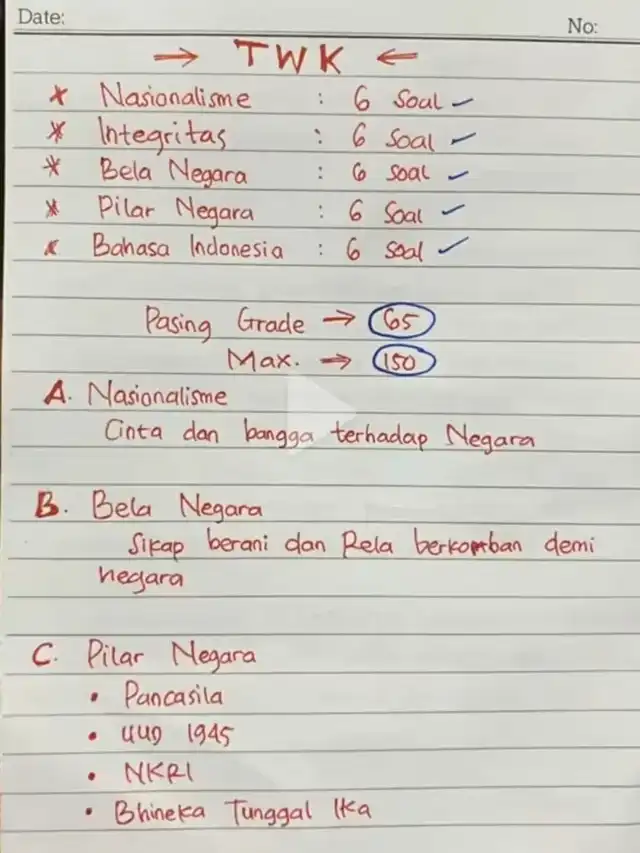 Date:
No:
→ TWK ←
* Nasionalisme : 6 Soal ✓
* Integritas : 6 Soal ✓
* Bela Negara : 6 Soal ✓
* Pilar Negara : 6 Soal ✓
* Bahasa Indonesia : 6 Soal ✓
Pasing Grade → 65
Max. → 150
A. Nasionalisme
Cinta dan bangga terhadap Negara
B. Bela Negara
Sikap berani dan Rela berkomban demi
negara
C. Pilar Negara
• Pancasila
• UUD 1945
• NKRI
• Bhineka Tunggal Ika